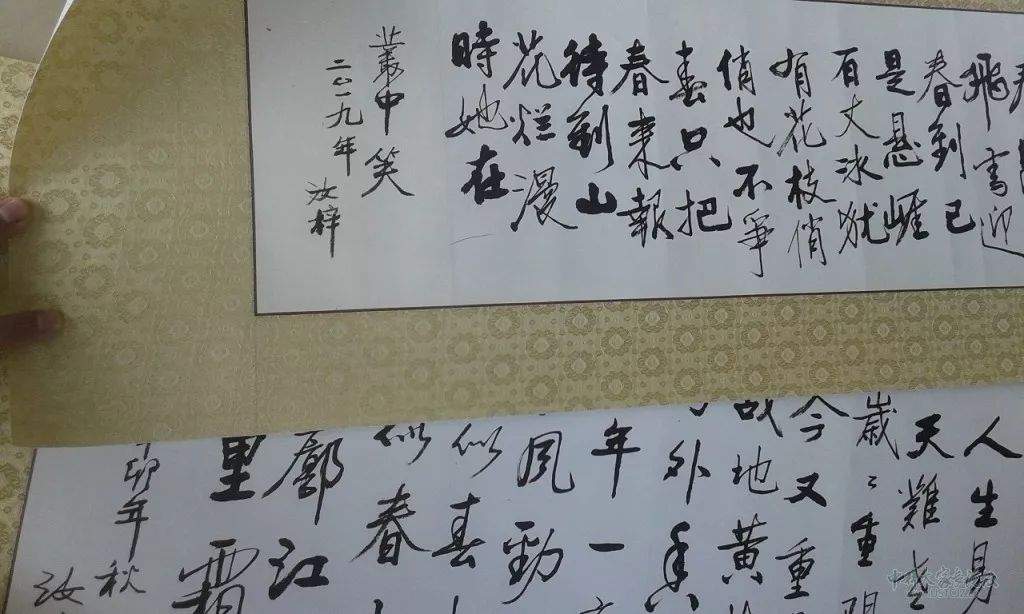 飛雪迎
春到已
是悬崕
百丈冰犹
有花枝俏
俏也不爭
春只把
春来報
待到山
花烂漫
時她在
叢中笑
二〇一九年 汝梓
人生易
天難老
歲々重
今又重
战地黄
外香
年一
风勁
似春
似春
廓江
里霜
卯年秋
汝